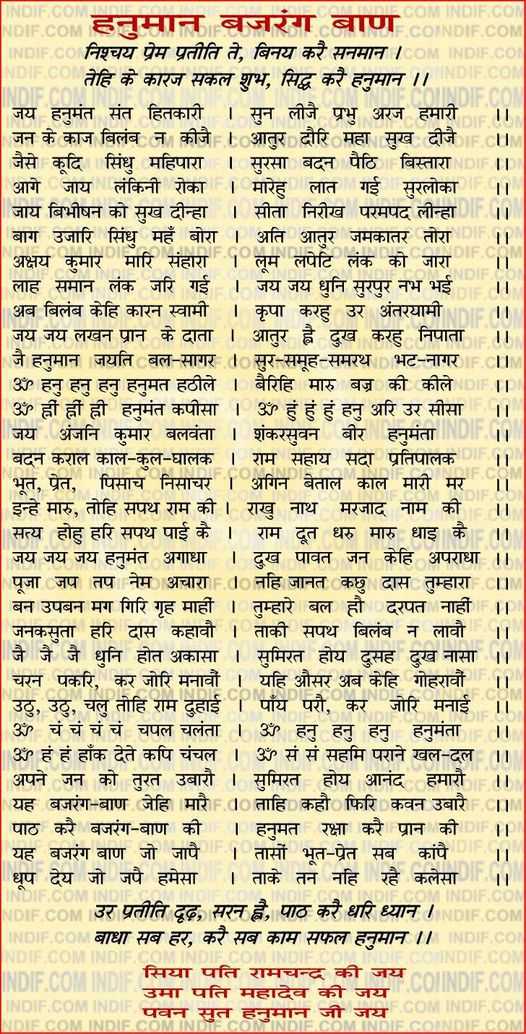 हनुमान बजरंग बाण
निश्चय प्रेम प्रतीति ते, बिनय करै सनमान ।
तेहि के कारज सकल शुभ, सिद्ध करै हनुमान ।।
जय हनुमंत संत हितकारी । सुन लीजै प्रभु अरज हमारी ।।
जन के काज बिलंब न कीजै । आतुर दौरि महा सुख दीजै ।।
जैसे कूदि सिंधु महिपारा । सुरसा बदन पैठि बिस्तारा ।।
आगे जाय लंकिनी रोका । मारेहु लात गई सुरलोका ।।
जाय बिभीषन को सुख दीन्हा । सीता निरखि परमपद लीन्हा ।।
बाग उजारि सिंधु महँ बोरा । अति आतुर जमकातर तोरा ।।
अक्षय कुमार मारि संहारा । लूम लपेटि लंक को जारा ।।
लाह समान लंक जरि गई । जय जय धुनि सुरपुर नभ भई ।।
अब बिलंब केहि कारन स्वामी । कृपा करहु उर अंतरयामी ।।
जय जय लखन प्रान के दाता । आतुर ह्वै दुख करहु निपाता ।।
जै हनुमान जयति बल-सागर । सुर-समूह-समरथ भट-नागर ।।
ॐ हनु हनु हनु हनुमत हठीले । बैरिहि मारु बज्र की कीले ।।
ॐ ह्नीं ह्नीं ह्नी हनुमंत कपीसा । ॐ हुं हुं हुं हनु अरि उर सीसा ।।
जय अंजनि कुमार बलवंता । शंकरसुवन बीर हनुमंता ।।
बदन कराल काल-कुल-घालक । राम सहाय सदा प्रतिपालक ।।
भूत, प्रेत, पिसाच निसाचर । अगिन बेताल काल मारी मर ।।
इन्हे मारु, तोहि सपथ राम की । राखु नाथ मरजाद नाम की ।।
सत्य होहु हरि सपथ पाई कै । राम दूत धरु मारु धाइ कै ।।
जय जय जय हनुमंत अगाधा । दुख पावत जन केहि अपराधा ।।
पूजा जप तप नेम अचारा । नहि जानत कछु दास तुम्हारा ।।
बन उपबन मग गिरि गृह माहीं । तुम्हारे बल हौ दरपत नाहीं ।।
जनकसुता हरि दास कहावौ । ताकी सपथ बिलंब न लावौ ।।
जै जै जै धुनि होत अकासा । सुमिरत होय दुसह दुख नासा ।।
चरन पकरि, कर जोरि मनावौं । यहि औसर अब केहि गोहरावौं
उठु, उठु, चलु तोहि राम दुहाई । पाँय परौ, कर जोरि मनाई ।।
ॐ चं चं चं चं चपल चलंता । ॐ हनु हनु हनु हनुमंता ।।
ॐ हं हं हाँक देते कपि चंचल । ॐ सं सं सहमि पराने खल-दल ।।
अपने जन को तुरत उबारौ । सुमिरत होय आनंद हमारौ ।।
यह बजरंग-बाण जेहि मारै । ताहि कहौ फिरि कवन उबारै ।।
पाठ करै बजरंग-बाण की । हनुमत रक्षा करै प्रान की ।।
यह बजरंग बाण जो जापै । तासों भूत-प्रेत सब कांपै ।।
धूप देय जो जपै हमेसा । ताके तन नहि रहै कलेसा ।।
उर प्रतीति दृढ़, सरन ह्वै, पाठ करै धरि ध्यान ।
बाधा सब हर, करै सब काम सफल हनुमान ।।
सिया पति रामचन्द्र की जय
उमा पति महादेव की जय
पवन सुत हनुमान जी जय
INDIF.COM